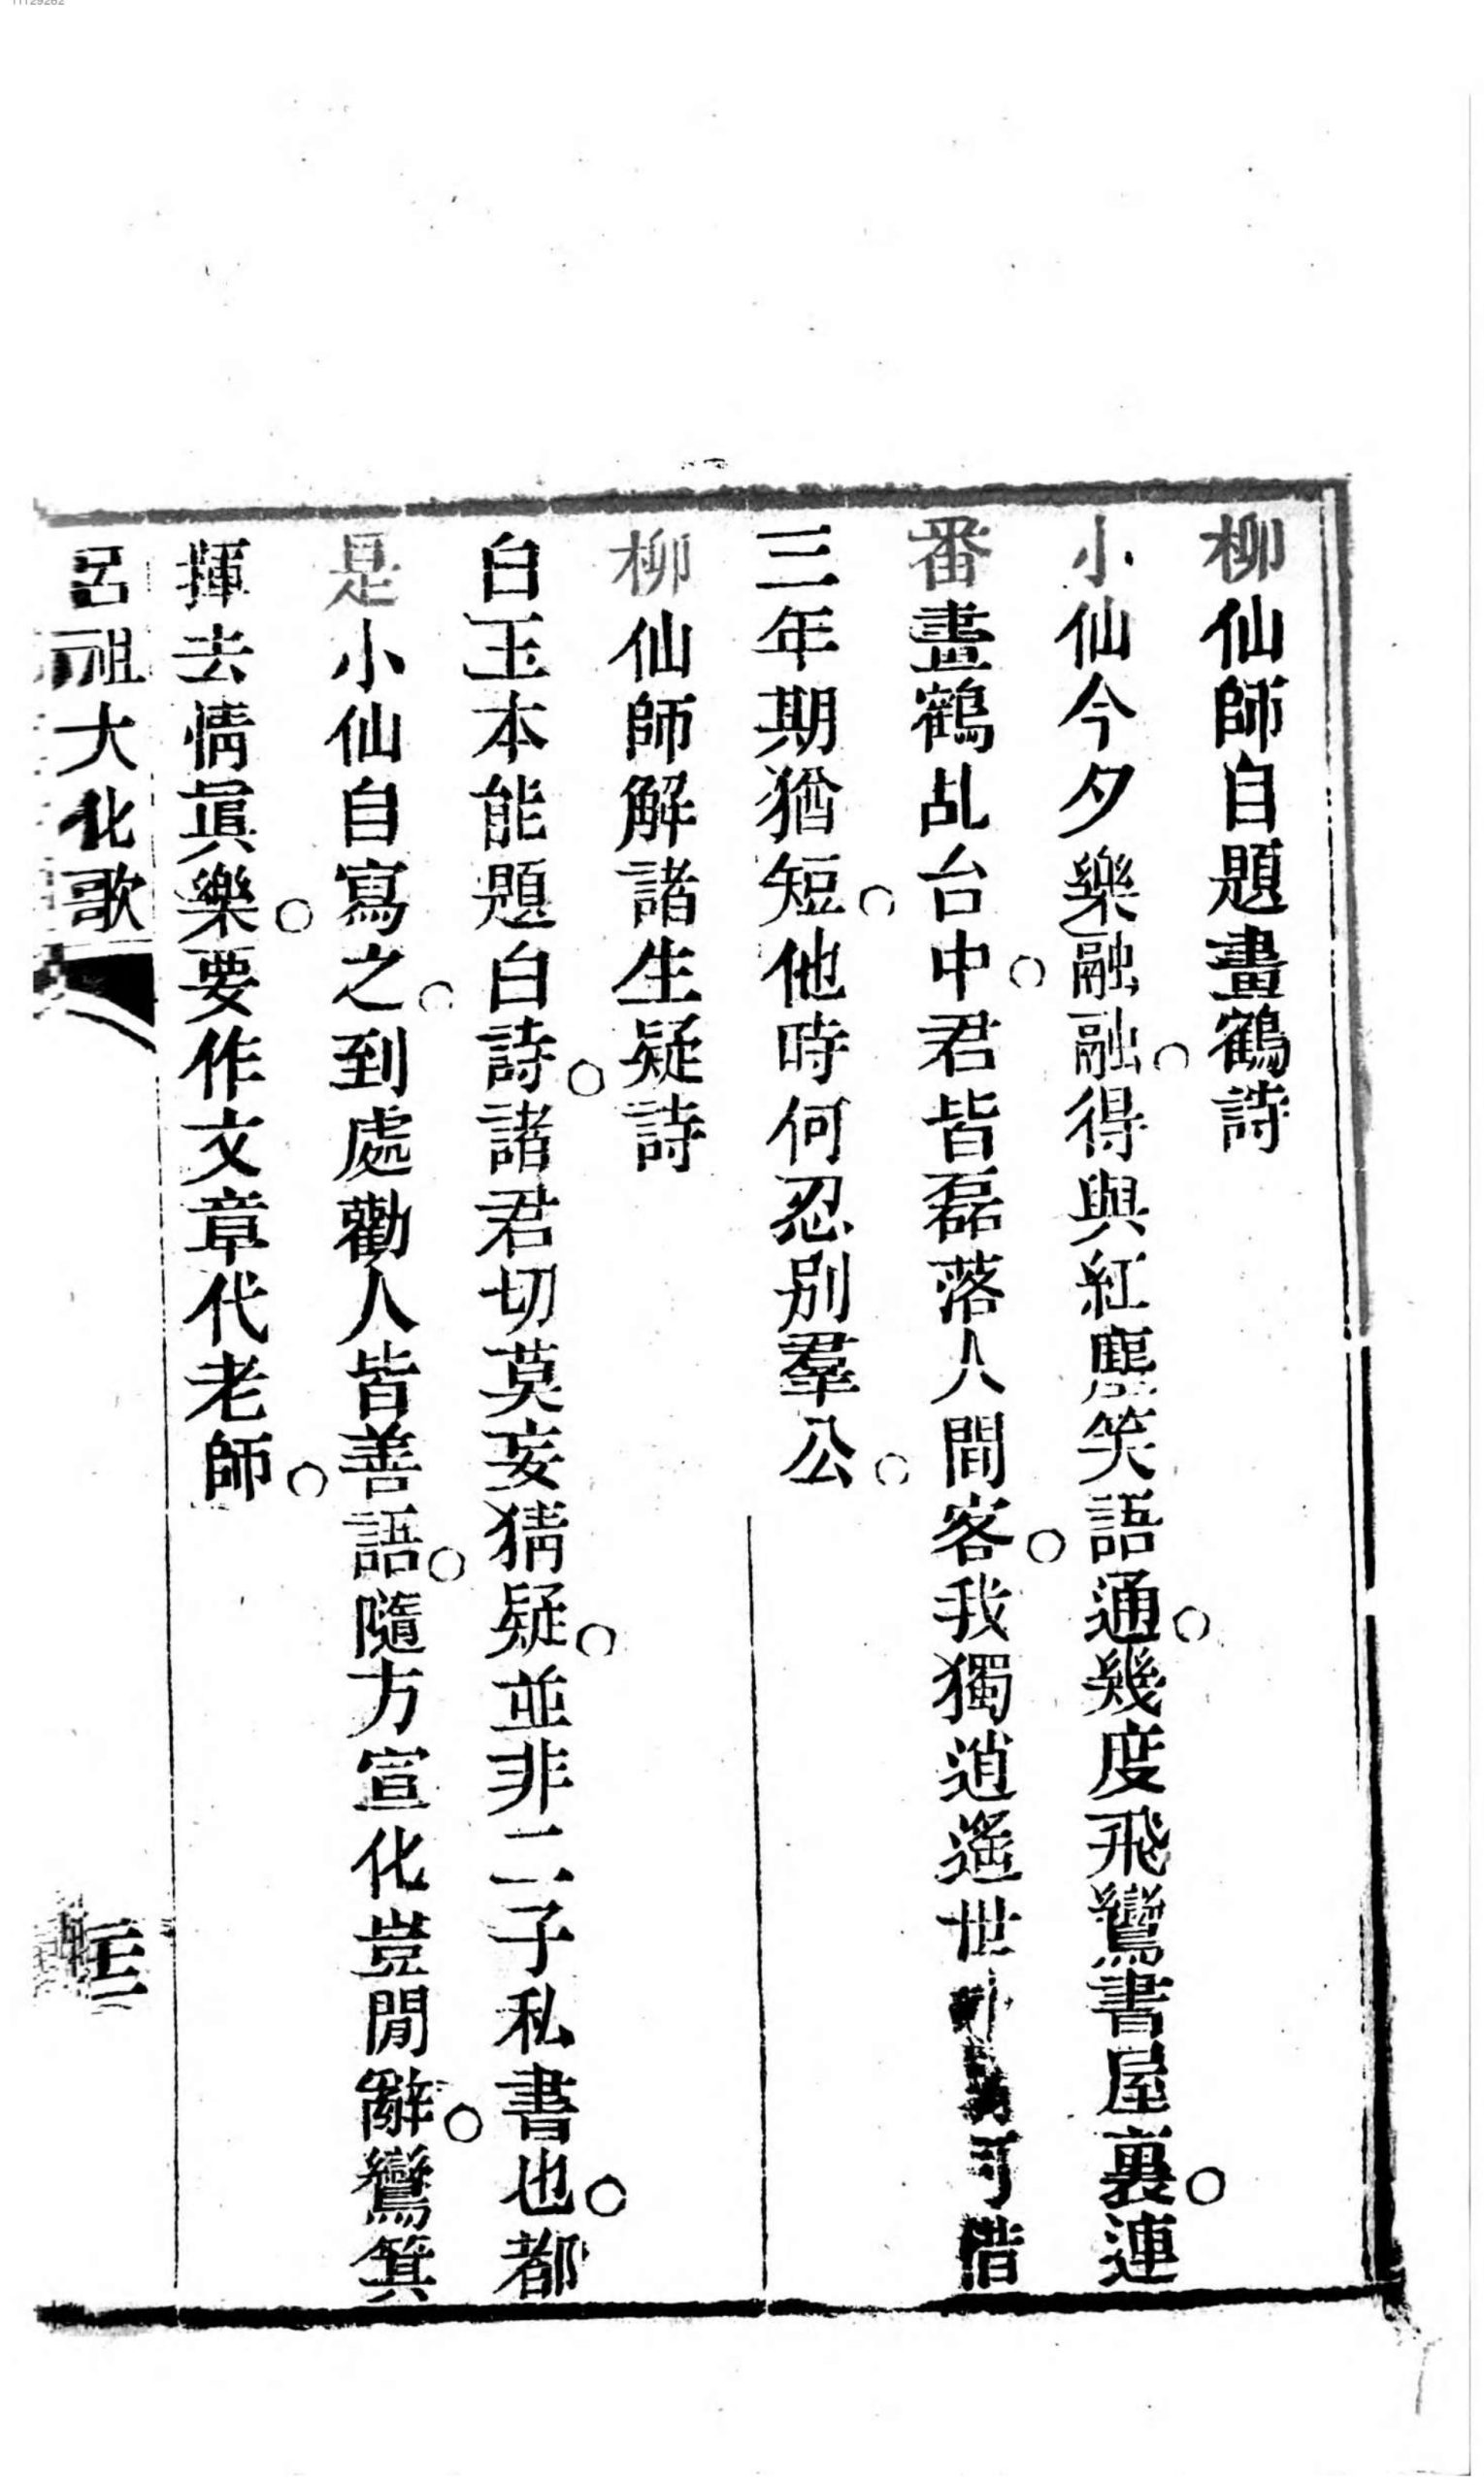 11129282
柳仙師自題畫鶴詩
小仙今夕樂融融。得與紅塵笑語通。幾度飛鸞書屋裏。連
番畫鶴乩台中。君皆磊落人間客。我獨逍遙世可惜
三年期猶短。他時何忍別羣公。
柳仙師解諸生疑詩
白玉本能題白詩。諸君切莫妄猜疑。並非二子私書也。都
是小仙自寫之。到處勸人皆善語。隨方宣化豈閒辭。鸞箕
揮去情眞樂。要作文章代老師。
呂祖大化歌